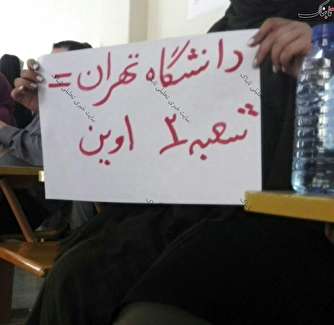 دانشگاه تهران =
شعبه ۲ اوین